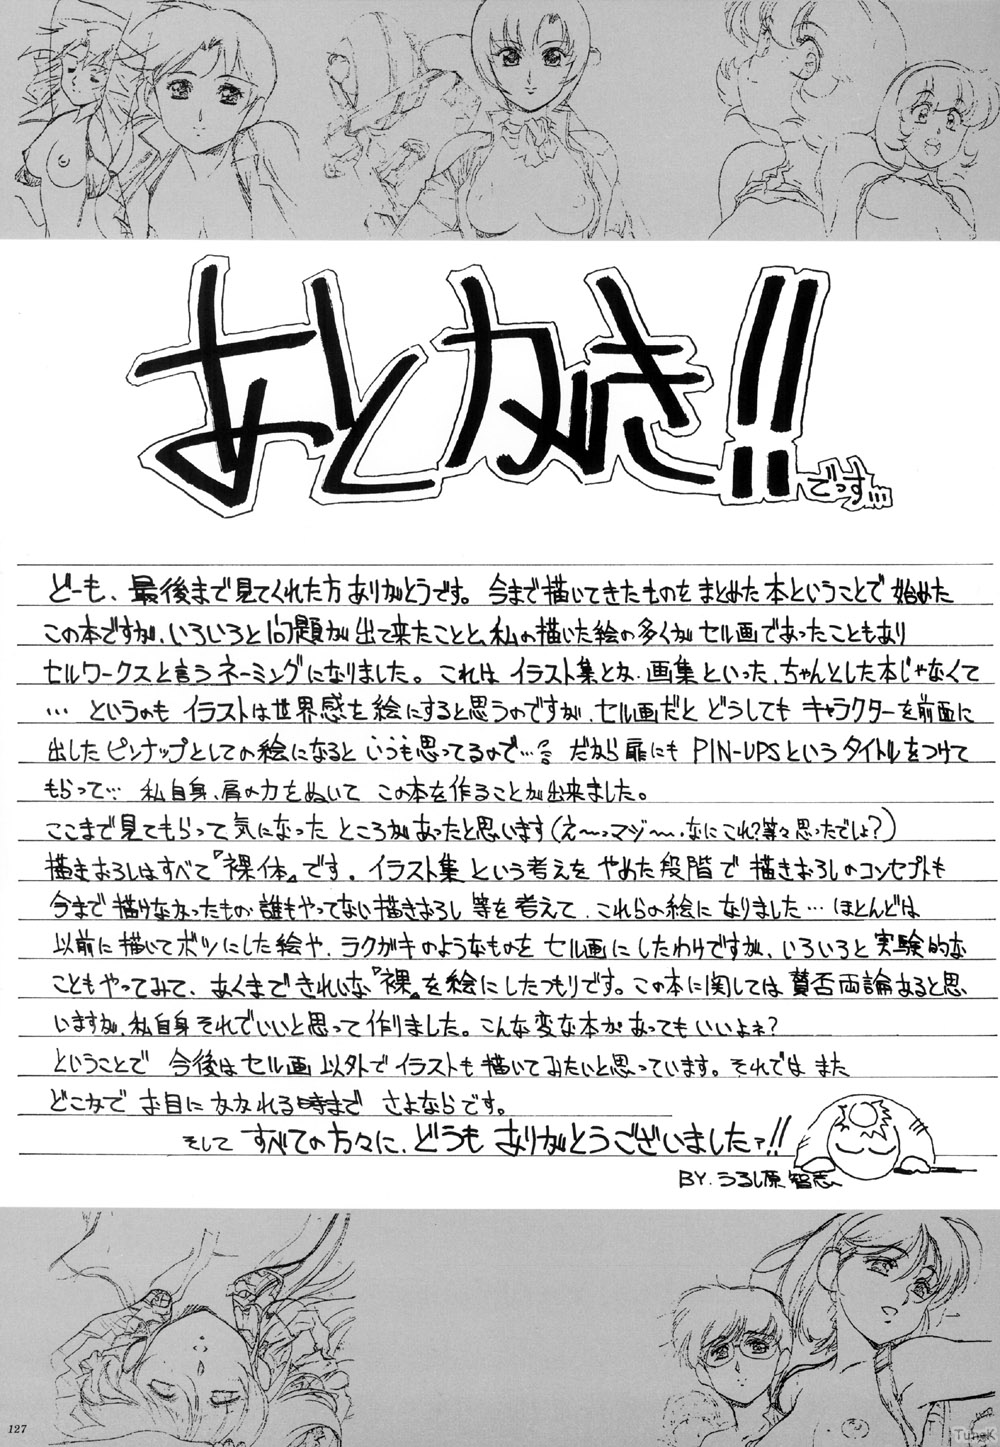 あとがき!!
でっす…
どーも、最後まで見てくれた方ありがとうです。今まで描いてきたものをまとめた本ということで始めた
この本ですが、いろいろと問題が出て来たことと、私の描いた絵の多くがセル画であったこともあり
セルワークスと言うネーミングになりました。これはイラスト集とか、画集といった、ちゃんとした本じゃなくて
… というのもイラストは世界感を絵にすると思うのですが、セル画だとどうしてもキャラクターを前面に
出したピンナップとしての絵になるといつも思ってるので…。だから扉にもPIN-UPSというタイトルをつけて
もらって… 私自身、肩の力をぬいてこの本を作ることが出来ました。
ここまで見てもらって気になったところがあったと思います(え〜っマジ〜、なにこれ?等々思ったでしょ?)
描きおろしはすべて『裸体』です。イラスト集という考えをやめた段階で描きおろしのコンセプトも
今まで描けなかったもの、誰もやってない描きおろし等を考えて、これらの絵になりました… ほとんどは
以前に描いてボツにした絵や、ラクガキのようなものをセル画にしたわけですが、いろいろと実験的な
こともやってみて、あくまできれいな『裸』を絵にしたつもりです。この本に関しては賛否両論あると思
いますが、私自身それでいいと思って作りました。こんな変な本があってもいいよね?
ということで今後はセル画以外でイラストも描いてみたいと思っています。それではまた
どこかでお目にかかれる時までさよならです。
そしてすべての方々に、どうもありがとうございましたァ!!
BY.うるし原智志
127
TunaK